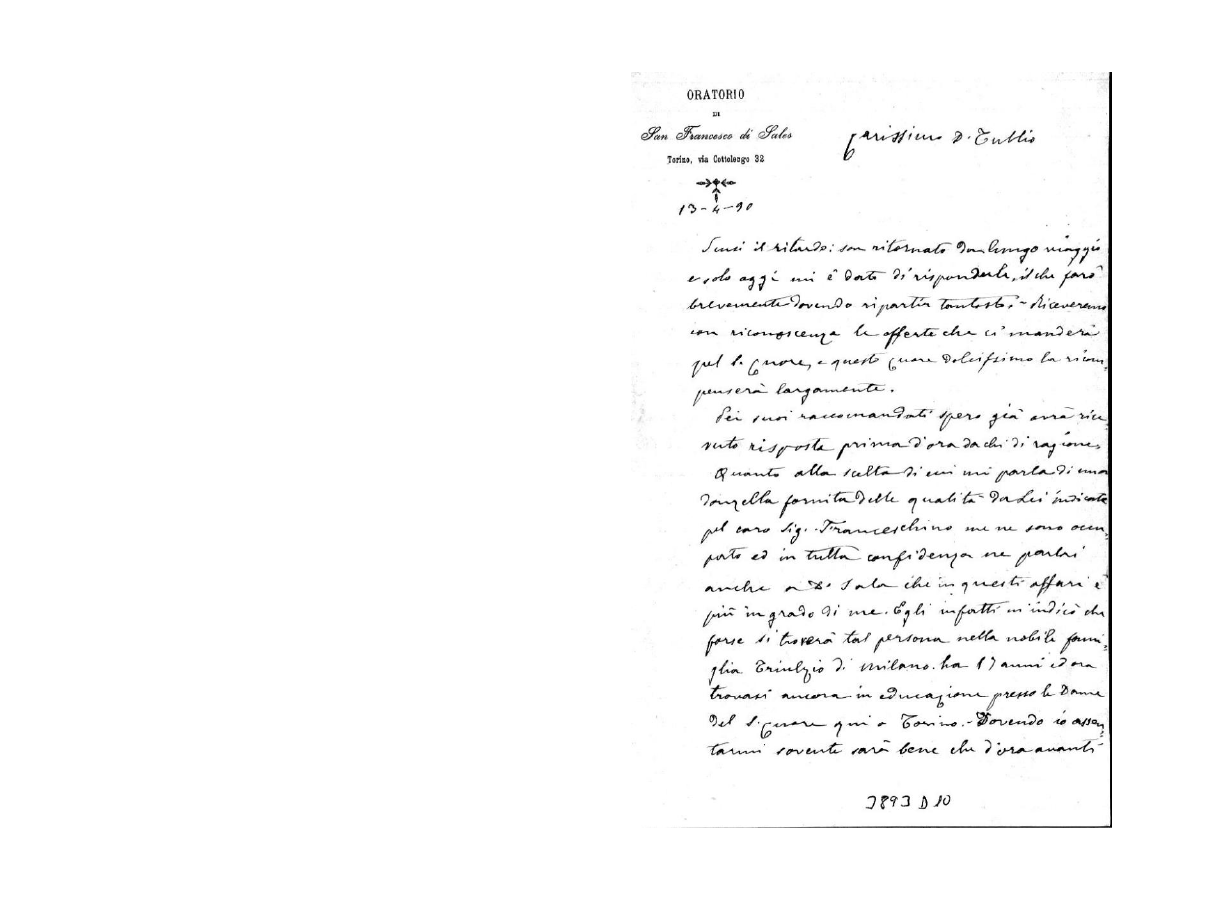 ORATORIO
DI
San Francesco di Sales
Torino, via Cottolengo 32
Carissimo D. Tullio
13-4-90
Scusi il ritardo: son ritornato da lungo viaggio
e solo oggi mi è dato di risponderle, il che farò
brevemente dovendo ripartir tantosto. - Riceveremo
con riconoscenza le offerte che ci manderà
pel S. Cuore, e questo Cuore dolcissimo la ricom-
penserà largamente.
Pei suoi raccomandati spero già avrà rice-
vuto risposta prima d'ora da chi di ragione.
Quanto alla scelta di cui mi parla di una
donzella fornita delle qualità da Lei indicate
pel caro Sig. Franceschino me ne sono occu-
pato ed in tutta confidenza ne parlai
anche a D. Sala che in questi affari è
più in grado di me. Egli infatti m'indicò che
forse si troverà tal persona nella nobile fami-
glia Triulzio di Milano. ha 17 anni ed ora
trovasi ancora in educazione presso le Dame
del S. Cuore qui a Torino. - Dovendo io assen-
tarmi sovente sarà bene che d'ora avanti
3893 D 10